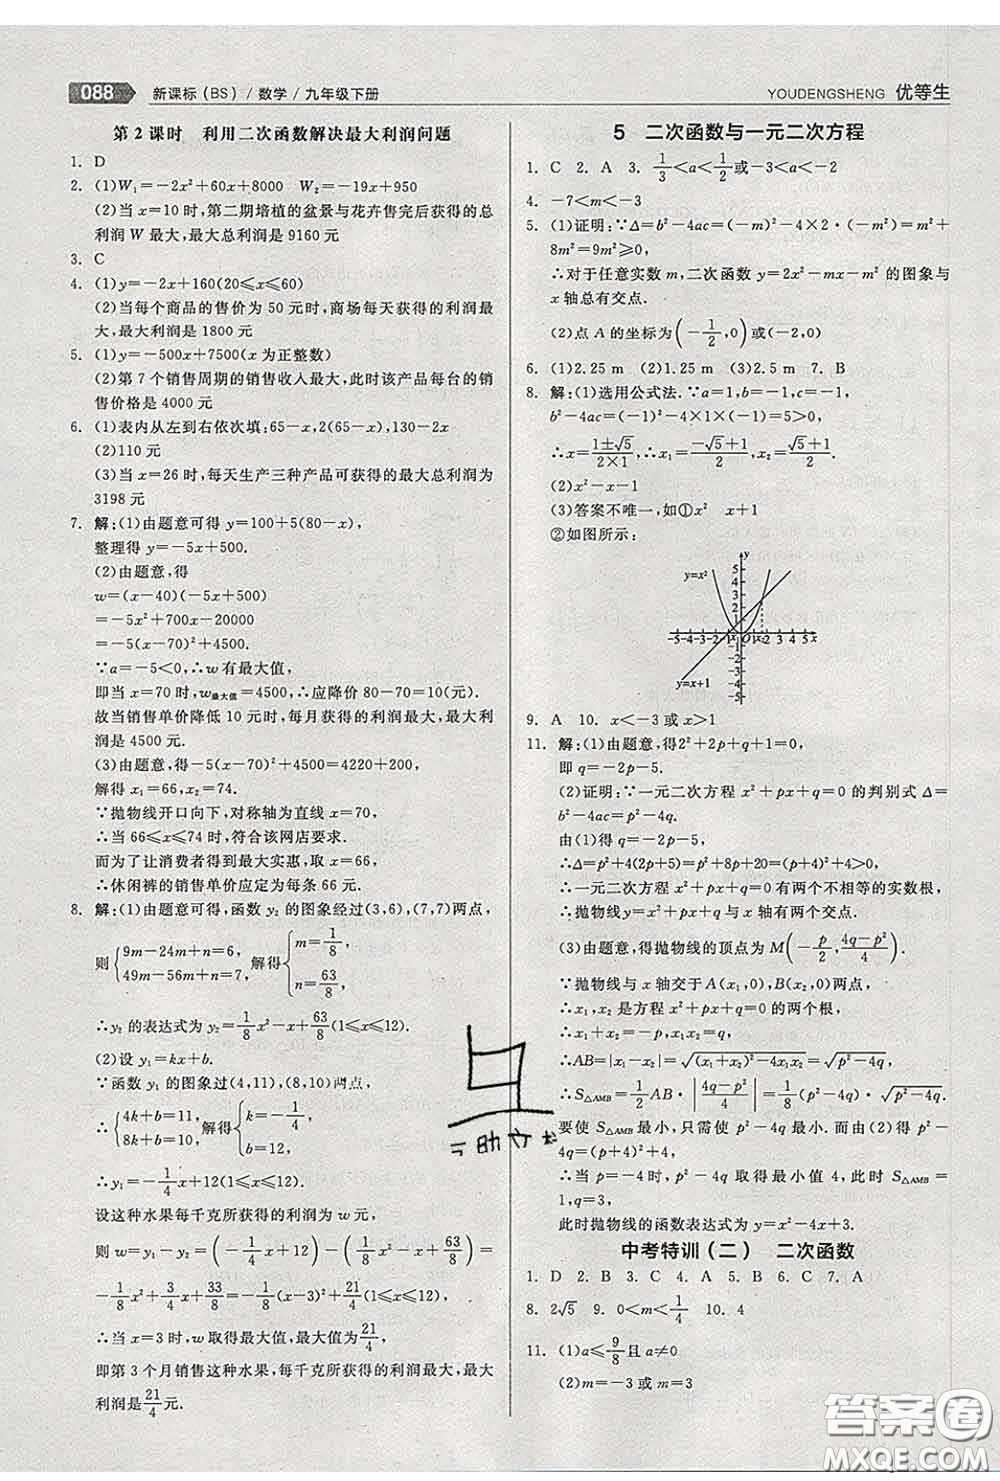 088 新课标(BS)/数学/九年级下册
YOUDENGSHENG 优等生
第2课时 利用二次函数解决最大利润问题
1. D
2. (1)W₁=-2x²+60x+8000 W₂=-19x+950
(2)当x=10时,第二期培植的盆景与花卉售完后获得的总
利润W最大,最大总利润是9160元
3. C
4. (1)y=-2x+160(20≤x≤60)
(2)当每个商品的售价为50元时,商场每天获得的利润最
大,最大利润是1800元
5. (1)y=-500x+7500(x为正整数)
(2)第7个销售周期的销售收入最大,此时该产品每台的销
售价格是4000元
6. (1)表内从左到右依次填:65-x,2(65-x),130-2x
(2)110元
(3)当x=26时,每天生产三种产品可获得的最大总利润为
3198元
7. 解:(1)由题意可得y=100+5(80-x),
整理得y=-5x+500.
(2)由题意,得
w=(x-40)(-5x+500)
=-5x²+700x-20000
=-5(x-70)²+4500.
∵a=-5<0,∴w有最大值,
即当x=70时,w最大值=4500,∴应降价80-70=10(元).
故当销售单价降低10元时,每月获得的利润最大,最大利
润是4500元.
(3)由题意,得-5(x-70)²+4500=4220+200,
解得x₁=66,x₂=74.
∵抛物线开口向下,对称轴为直线x=70,
∴当66≤x≤74时,符合该网店要求.
而为了让消费者得到最大实惠,故取x=66.
∴休闲裤的销售单价应定为每条66元.
8. 解:(1)由题意可得,函数y₂的图象经过(3,6),(7,7)两点,
则{9m-24m+n=6, 49m-56m+n=7, 解得{m=1/8, n=63/8,
∴y₂的表达式为y₂=1/8x²-x+63/8(1≤x≤12).
(2)设y₁=kx+b.
∵函数y₁的图象过(4,11),(8,10)两点,
∴{4k+b=11, 8k+b=10, 解得{k=-1/4, b=12,
∴y₁=-1/4x+12(1≤x≤12).
设这种水果每千克所获得的利润为w元,
则w=y₁-y₂=(-1/4x+12)-(1/8x²-x+63/8)=
-1/8x²+3/4x+33/8=-1/8(x-3)²+21/4(1≤x≤12),
∴当x=3时,w取得最大值,最大值为21/4,
即第3个月销售这种水果,每千克所获得的利润最大,最大利
润是21/4元.
5 二次函数与一元二次方程
1. C 2. A 3. 1/3<a<1/2或-3<a<-2
4. -7<m<-3
5. (1)证明:∵Δ=b²-4ac=(-m)²-4×2·(-m²)=m²+
8m²=9m²≥0,
∴对于任意实数m,二次函数y=2x²-mx-m²的图象与
x轴总有交点.
(2)点A的坐标为(-1/2,0)或(-2,0)
6. (1)2.25 m (2)1.25 m (3)2.5 m 7. B
8. 解:(1)选用公式法.∵a=1,b=-1,c=-1,
b²-4ac=(-1)²-4×1×(-1)=5>0,
∴x=(1±√5)/(2×1),∴x₁=(-√5+1)/2,x₂=(√5+1)/2
(2)x²-x-1
(3)答案不唯一,如①x² x+1
②如图所示:
y=x²
y
5
4
3
2
1
-5-4-3-2-1 x₁ O 1x₂2 3 4 5 x
-1
-2
-3
-4
-5
y=x+1
9. A 10. x<-3或x>1
11. 解:(1)由题意,得2²+2p+q+1=0,
即q=-2p-5.
(2)证明:∵一元二次方程x²+px+q=0的判别式Δ=
b²-4ac=p²-4q.
由(1)得q=-2p-5,
∴Δ=p²+4(2p+5)=p²+8p+20=(p+4)²+4>0,
∴一元二次方程x²+px+q=0有两个不相等的实数根,
∴抛物线y=x²+px+q与x轴有两个交点.
(3)由题意,得抛物线的顶点为M(-p/2,(4q-p²)/4).
∵抛物线与x轴交于A(x₁,0),B(x₂,0)两点,
∴x₁,x₂是方程x²+px+q=0的两个根,
∴x₁+x₂=-p,x₁x₂=q,
∴AB=|x₁-x₂|=√((x₁+x₂)²-4x₁x₂)=√(p²-4q),
∴S△AMB=1/2AB·|(4q-p²)/4|=1/8(p²-4q)·√(p²-4q).
要使S△AMB最小,只需使p²-4q最小.而由(2)得Δ=p²-
4q=(p+4)²+4,
∴当p=-4时,p²-4q取得最小值4,此时S△AMB=
1,q=3,
此时抛物线的函数表达式为y=x²-4x+3.
中考特训(二) 二次函数
1. D 2. B 3. C 4. A 5. B 6. C 7. A
8. 2√5 9. 0<m<1/4 10. 4
11. (1)a≤9/8且a≠0
(2)m=-3或m=3
答案圈
MXQE.COM